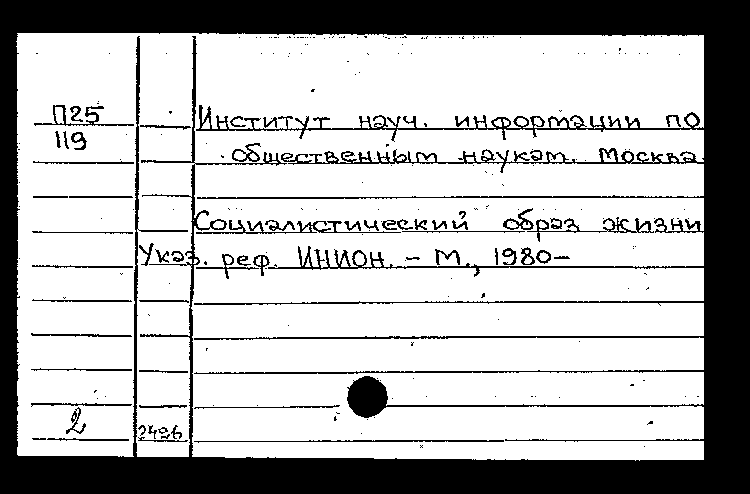 П25
119
Институт науч. информации по
общественным наукам. Москва.
Социалистический образ жизни
Указ. реф. ИНИОН. – М., 1980–
2
2496